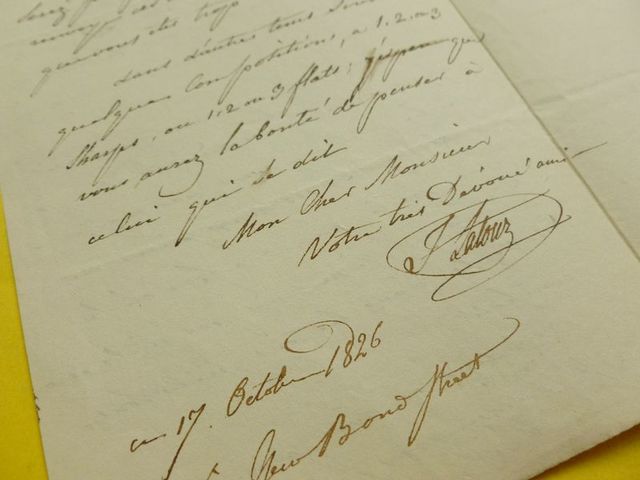 que vous
dans d'autres tems
quelques Compositions, a 1. 2. ou 3
Sharps, ou 1. 2 ou 3 flats; j'espere que
vous aurez la bonté de penser à
celui qui se dit
Mon Cher Monsieur
Votre très Dévoué ami
J Latour
17. October 1826
New Bond Street